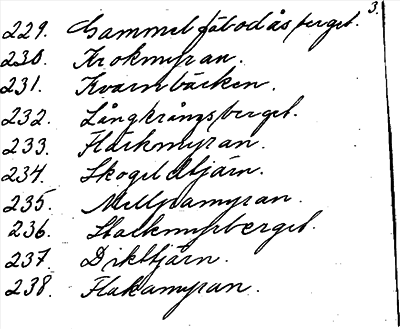 3.
229. Gammelfäbodåsberget.
230. Krokmyran.
231. Kvarnbäcken.
232. Långkrångsberget.
233. Flärkmyran.
234. Skogel tjärn.
235. Mellnamyran.
236. Stakkmyrberget.
237 Diktjärn.
238. Flakamyran.